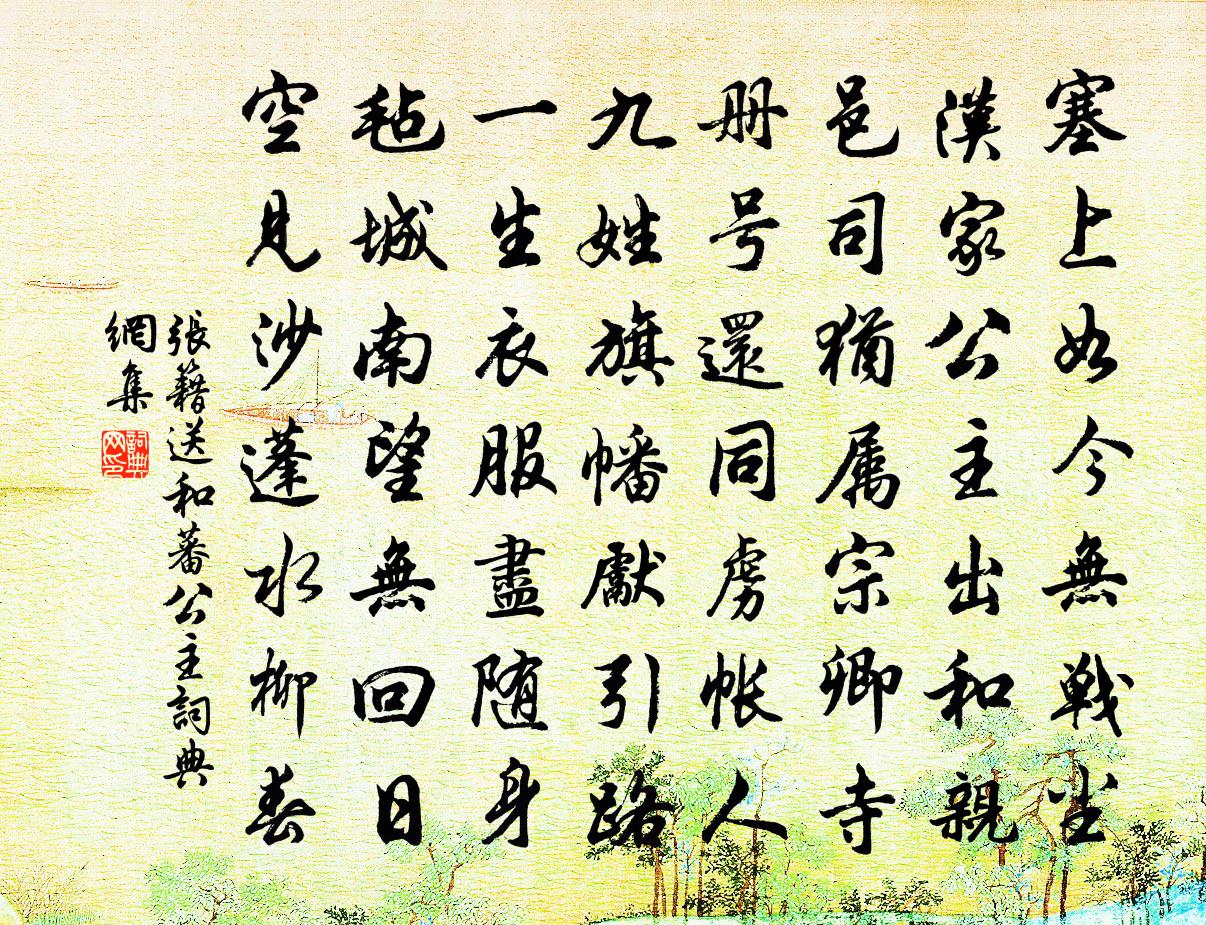 塞上如今無戰尘
漢家公主出和親
邑司猶属宗卿寺
册号還同虏帐人
九姓旗幡獻引路
一生衣服盡随身
毡城南望無回日
空見沙蓬水柳春
張籍送和蕃公主詞典
網集
詞典
网印